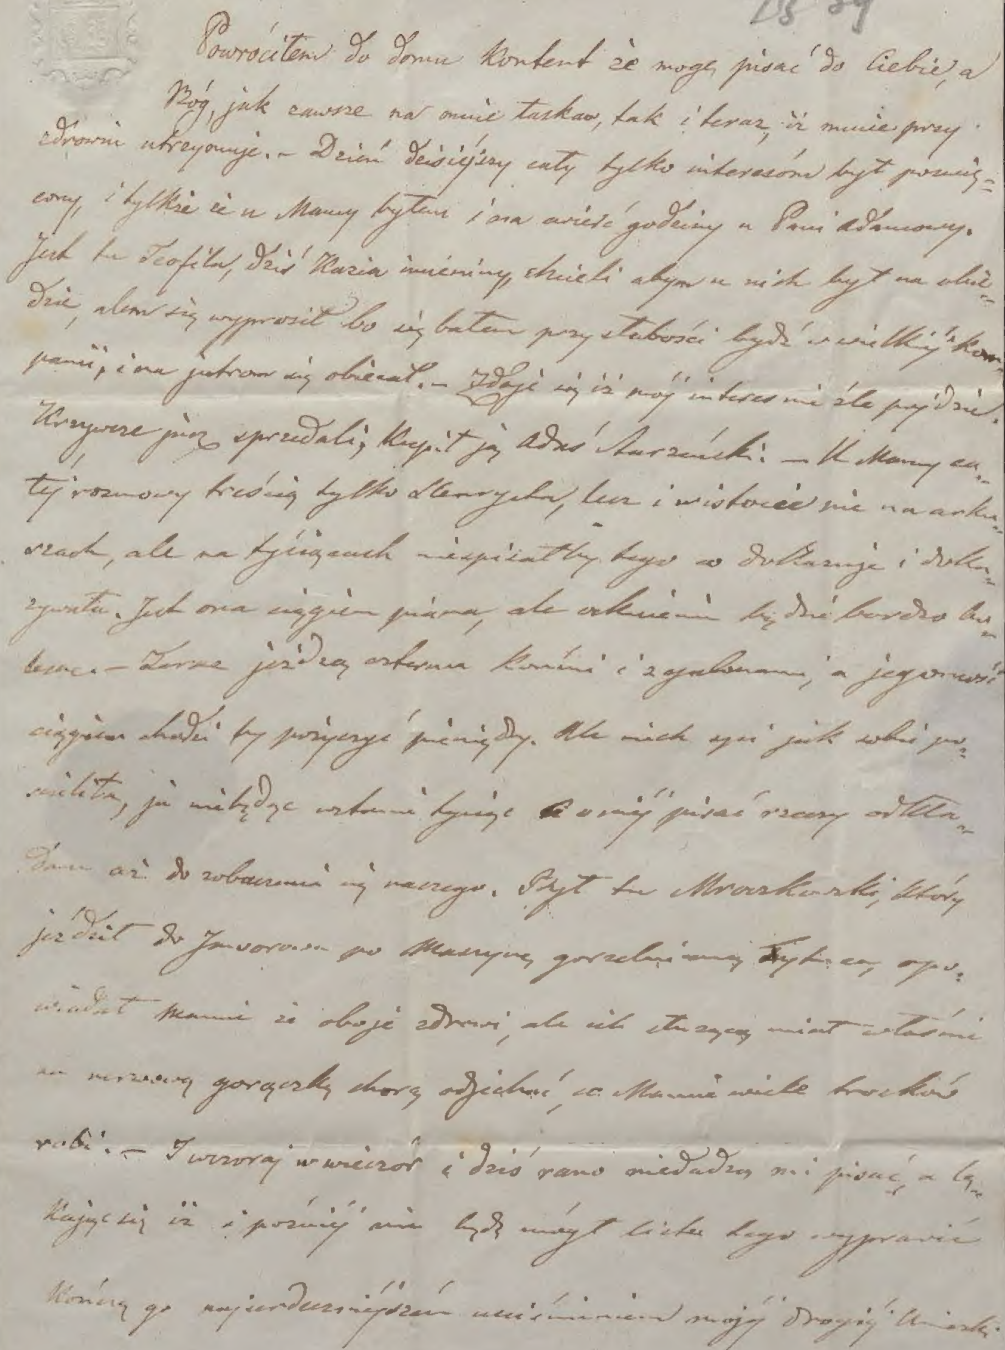 Powróciłem do domu kontent że mogę pisać do Ciebie, a
Bóg, jak zawsze na mnie łaskaw, tak i teraz, iż mnie przy
zdrowiu utrzymuje. – Dzień dzisiejszy cały tylko interesóm był poświę=
cony, i tylkże że u Mamy byłem i na ćwierć godziny u Pani Adamowy.
Jest tu Teofila, dziś Kazia imieniny, chcieli abym u nich był na obie=
dzie, alem się wyprosił bo się bałem przy słabości bydź w wielkiéj kom=
panii, i na jutrom się obiecał. – Zdaje się iż mój interes nie źle pójdzie.
Krzywcze już sprzedali, kupił ją Adaś Starzeński. – U Mamy ca=
łéj rozmowy treścią tylko Henrycha, lecz i wistocie nie na arku=
szach, ale na tysiącach niespisałby tego co dokazuje i doka=
zywała. Jest ona ciągiem pijana, ale ocknienie będzie bardzo bo=
lesne. – Zaraz jeżdżą czterma końmi i z galonami, a jegomość
ciągiem chodzi by pożyczyć pieniędzy. Ale niech śpi jak sobie po=
ścieliła, ja niebędąc wstanie tysiąc o niéj pisać rzeczy odkła=
dam aż do zobaczenia się naszego. Był tu Mroczkowski, który
jeździł do Jaworowa po Maszynę gorzelnianą, opo=
wiadał Mamie że oboje zdrowi, ale ich służącą miał właśnie
na nerwową gorączkę chorą odjechać, co Mamie wiele trosków
robi. – I wczoraj wwieczór i dziś rano niedadzą mi pisać, a lę=
kając się iż i poźniéj nie będę mógł listu tego wyprawić
kończę go najserdeczniéjszém uściśnieniem mojéj drogiéj